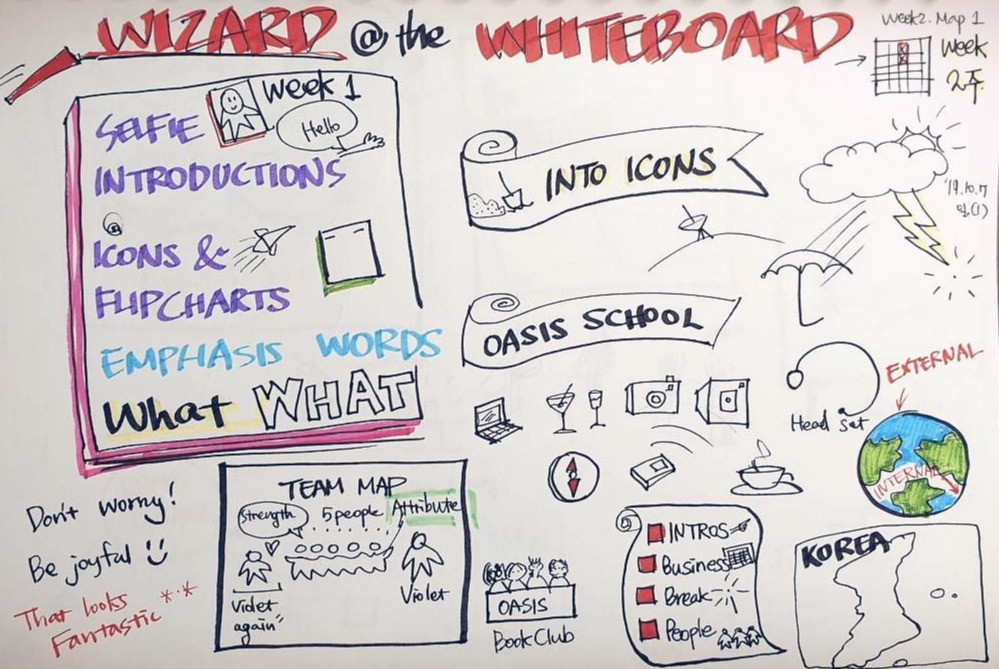 WIZARD @ the WHITEBOARD
Week2. Map 1
Week
2주
Week 1
SELFIE
Hello
INTRODUCTIONS
ICONS &
FLIPCHARTS
EMPHASIS WORDS
What WHAT
INTO ICONS
'19.10.7
OASIS SCHOOL
Head set
EXTERNAL
INTERNAL
Don't worry!
Be joyful
That looks
Fantastic
TEAM MAP
Strength 5people Attribute
Violet
again"
Violet
OASIS
BookClub
INTROS
Business
Break
People
KOREA